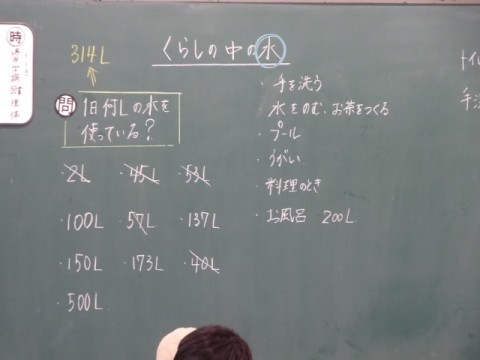 時
314L
くらしの中の水
問
1日何Lの水を
使っている?
・2L ・45L ・53L
・100L ・57L ・137L
・150L ・173L ・40L
・500L
・手を洗う
・水をのむ、お茶をつくる
・プール
・うがい
・料理のとき
・お風呂 200L
トイレ
手洗